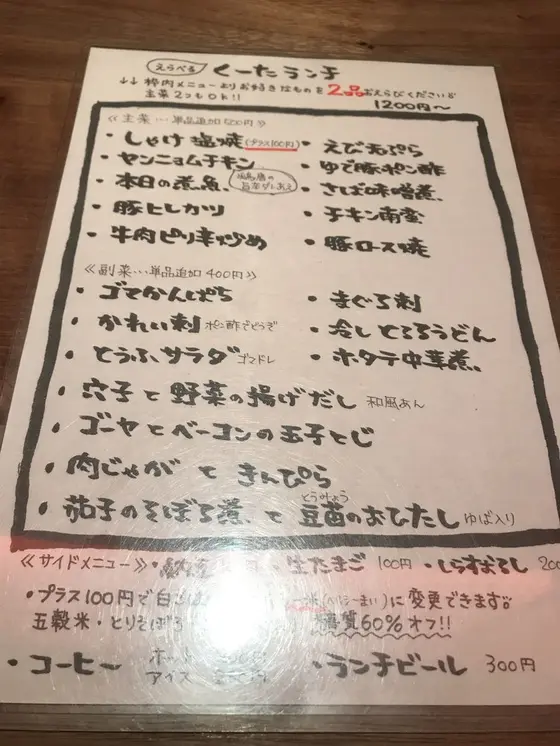 えらべる くーたランチ
↓↓ 枠内メニューよりお好きなものを2品おえらびください
主菜2つもOK!! 1200円〜
≪主菜…単品追加500円≫
・しゃけ塩焼(プラス100円) ・えび天ぷら
・ヤンニョムチキン ・ゆで豚ポン酢
・本日の煮魚 ・さば味噌煮
・豚ヒレカツ ・チキン南蛮
・牛肉ピリ辛炒め ・豚ロース焼
≪副菜…単品追加400円≫
・ゴマかんぱち ・まぐろ刺
・かれい刺 ポン酢でどうぞ ・冷しとろろうどん
・とうふサラダ ゴマドレ ・ホタテ中華煮
・穴子と野菜の揚げだし 和風あん
・ゴーヤとベーコンの玉子とじ
・肉じゃがときんぴら
・茄子のそぼろ煮と豆苗のおひたし ゆば入り
とうみょう
≪サイドメニュー≫ ・生たまご 100円 ・しらすおろし
・プラス100円で白 に変更できます。
五穀米・とりそぼろ 糖質60%オフ!!
・コーヒー ・ランチビール 300円
アイス